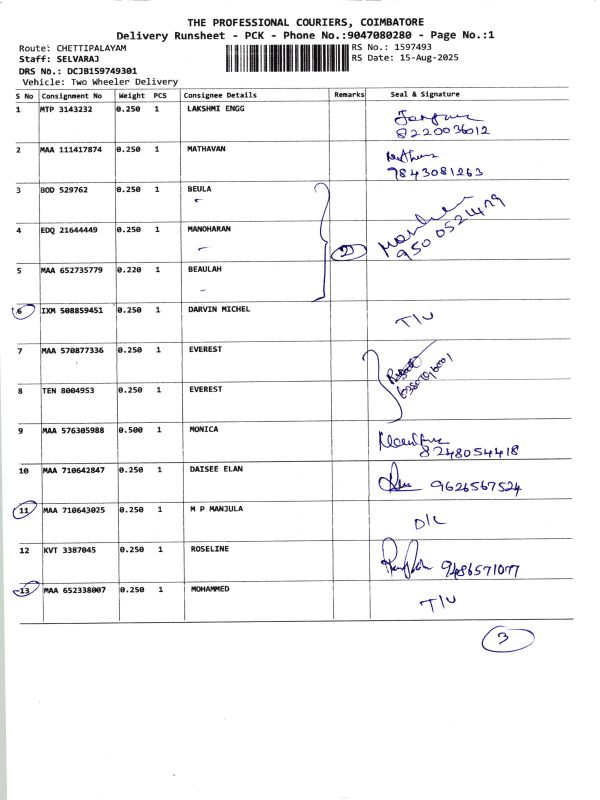 THE PROFESSIONAL COURIERS, COIMBATORE
Delivery Runsheet - PCK - Phone No.:9047080280 - Page No.:1
Route: CHETTIPALAYAM
RS No.: 1597493
Staff: SELVARAJ
RS Date: 15-Aug-2025
DRS No.: DCJB159749301
Vehicle: Two Wheeler Delivery
S No Consignment No Weight PCS Consignee Details Remarks Seal & Signature
1 MTP 3143232 0.250 1 LAKSHMI ENGG
8220036012
2 MAA 111417874 0.250 1 MATHAVAN
9843081263
3 BOD 529762 0.250 1 BEULA
4 EDQ 21644449 0.250 1 MANOHARAN
9500521479
5 MAA 652735779 0.220 1 BEAULAH
6 IXM 508859451 0.250 1 DARVIN MICHEL T/U
7 MAA 570877336 0.250 1 EVEREST
8 TEN 8004953 0.250 1 EVEREST
9 MAA 576305988 0.500 1 MONICA
8248054418
10 MAA 710642847 0.250 1 DAISEE ELAN 9626567524
11 MAA 710643025 0.250 1 M P MANJULA D/L
12 KVT 3387045 0.250 1 ROSELINE 9486571077
13 MAA 652338007 0.250 1 MOHAMMED T/U
3